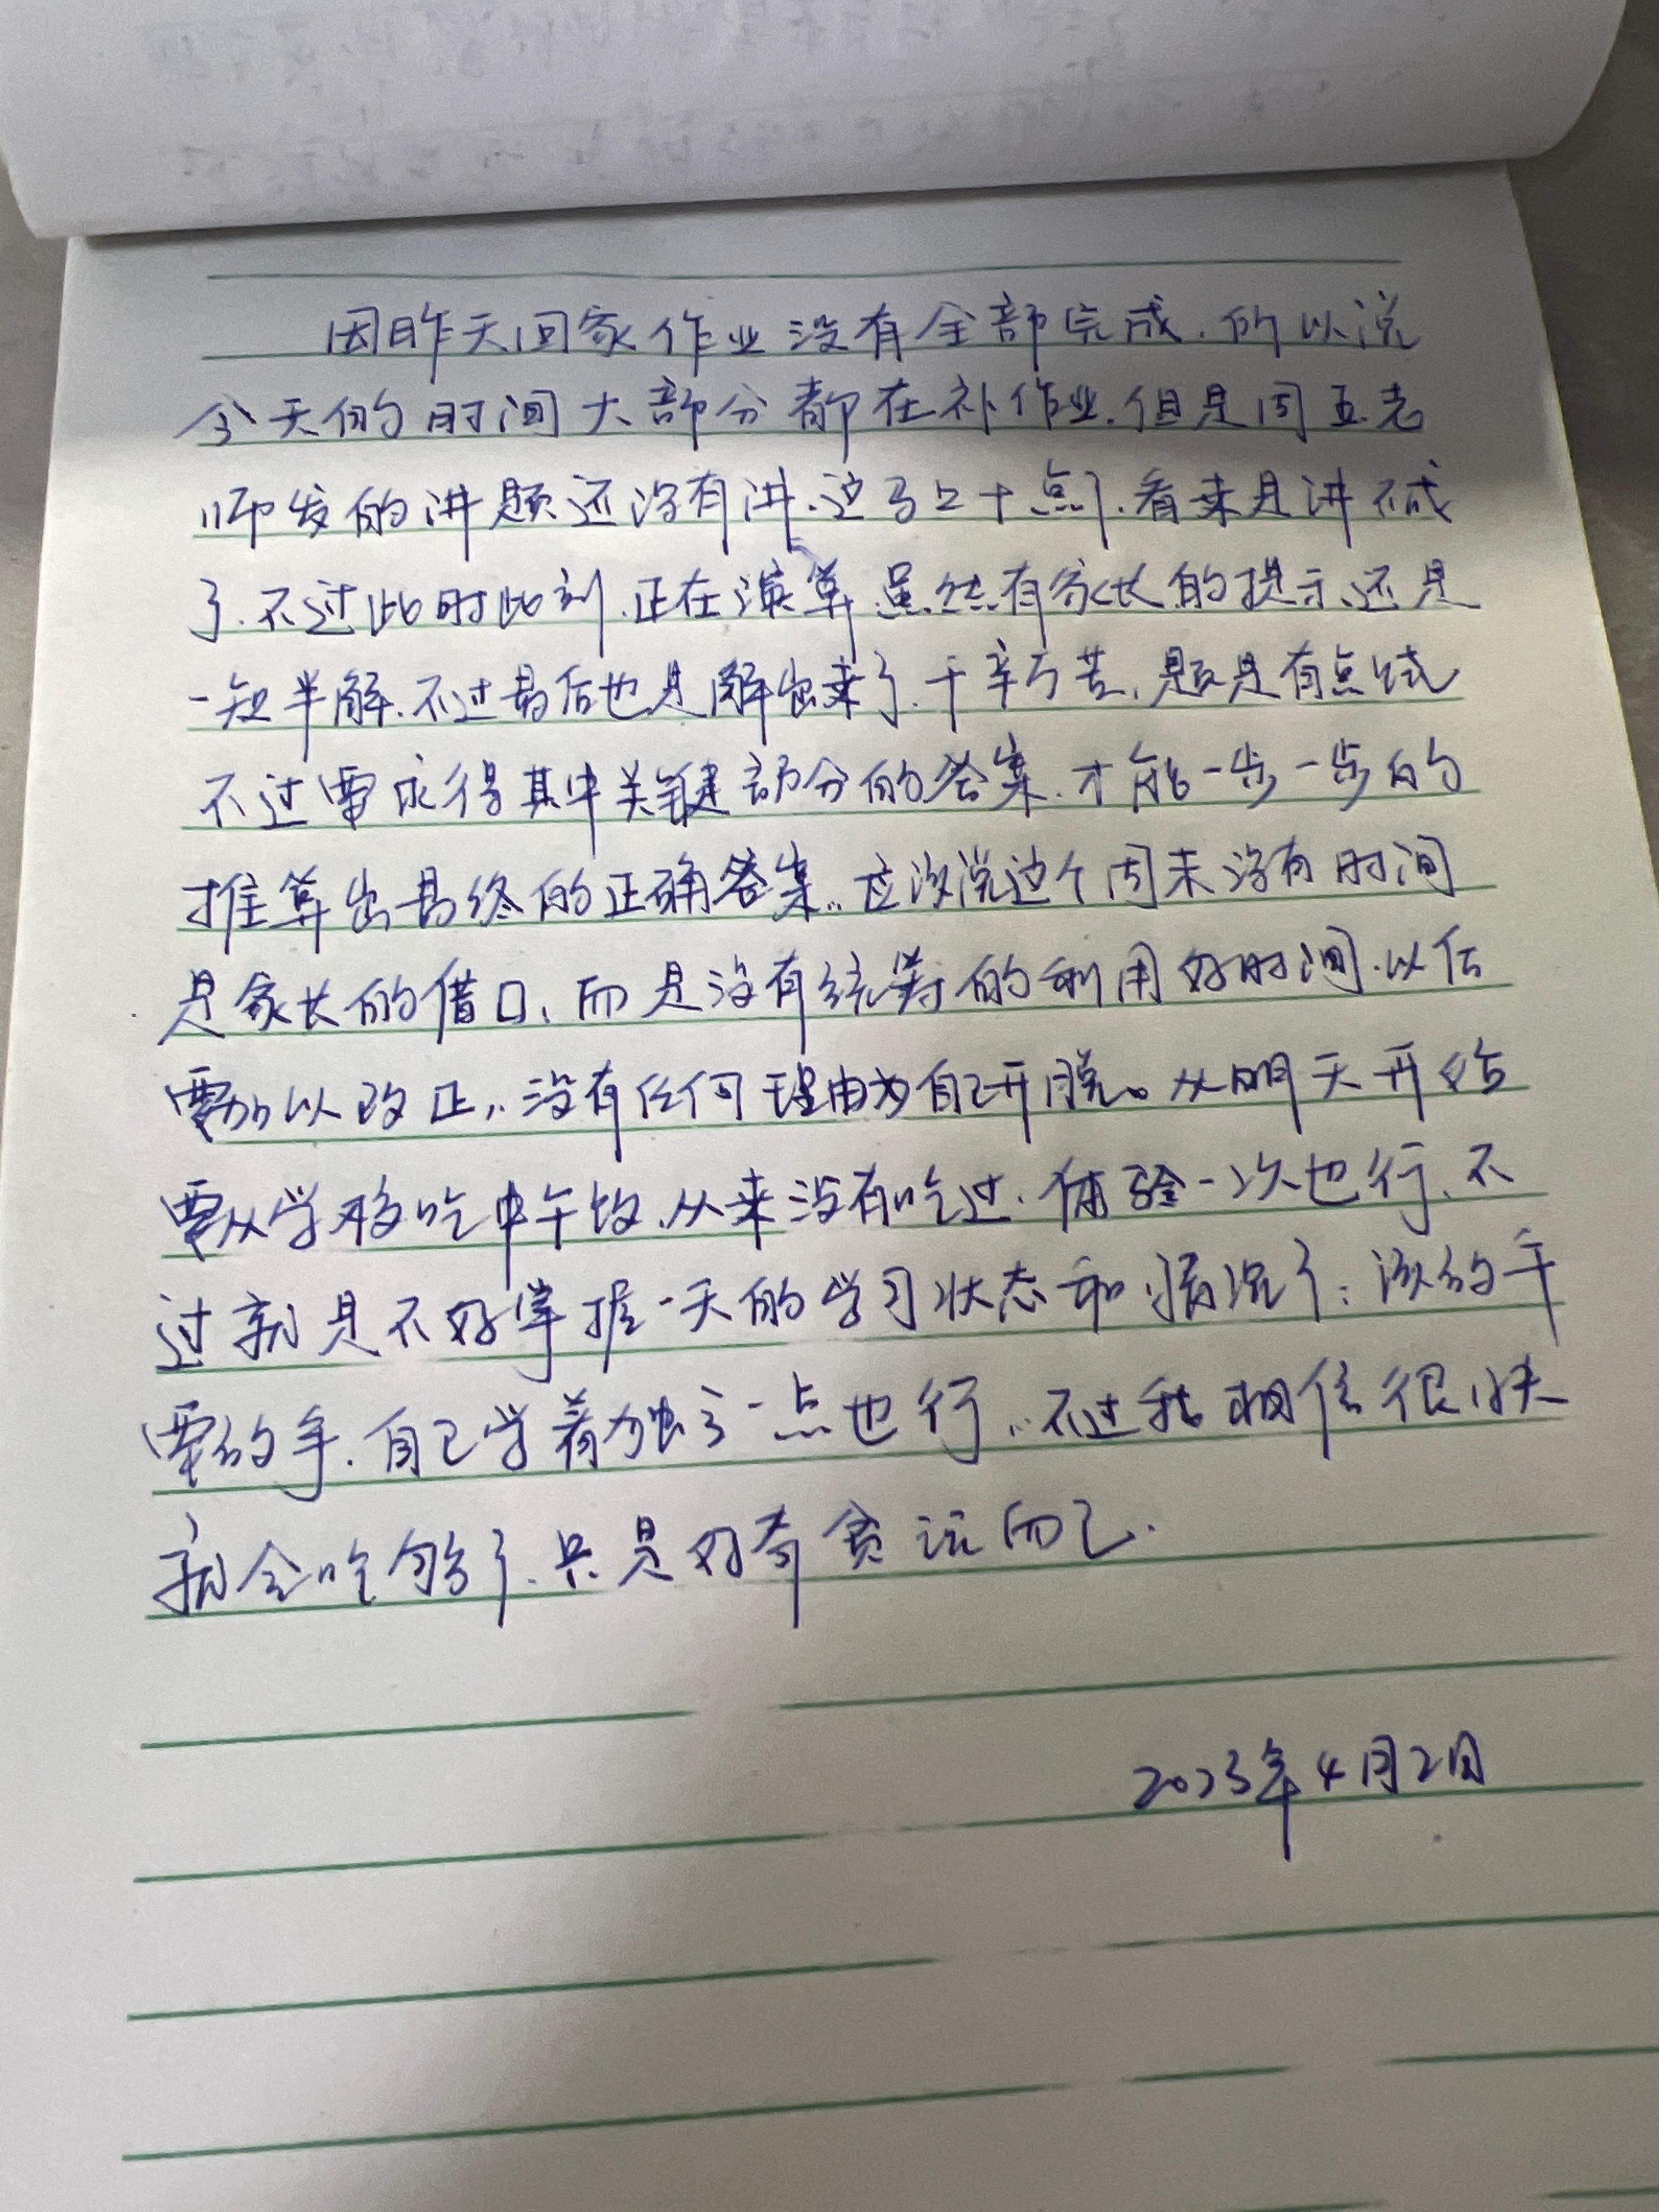 因昨天回家作业没有全部完成.所以说
今天的时间大部分都在补作业.但是周五老
师发的讲题还没有讲.这马上十点了.看来是讲不成
了.不过此时此刻.正在演算.虽然有家长的提示.还是
一知半解.不过最后也是解出来了.千辛万苦.题是有点绕
不过需求得其中关键部分的答案.才能一步一步的
推算出最终的正确答案..应该说这个周末没有时间
是家长的借口.而是没有统筹的利用好时间.以后
要加以改正..没有任何理由为自己开脱。从明天开始
要从学校吃中午饭.从来没有吃过.体验一次也行.不
过就是不好掌握一天的学习状态和情况了:该放手
要放手.自己学着独立一点也行..不过我相信很快
就会吃够了.只是好奇而已.
2023年4月2日